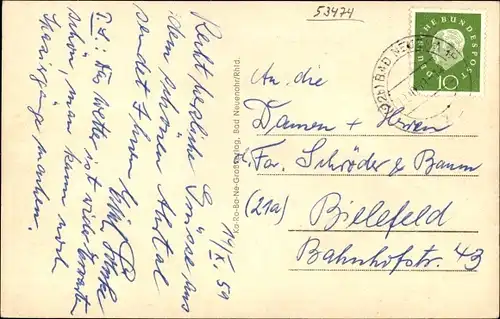 53474
14/X. 59
Recht herzliche Grüsse aus
dem schönen Ahrtal
sendet Ihnen
das Wetter ist
schön, man kann noch
Spaziergänge machen.
Ka-Ro-Ba-Ne-Großverlag, Bad Neuenahr/Rhld.
DEUTSCHE BUNDESPOST
10
BAD NEUENAHR
An die
Damen + Herren
Fa. Schröder & Baum
(21a) Bielefeld
Bahnhofstr. 43